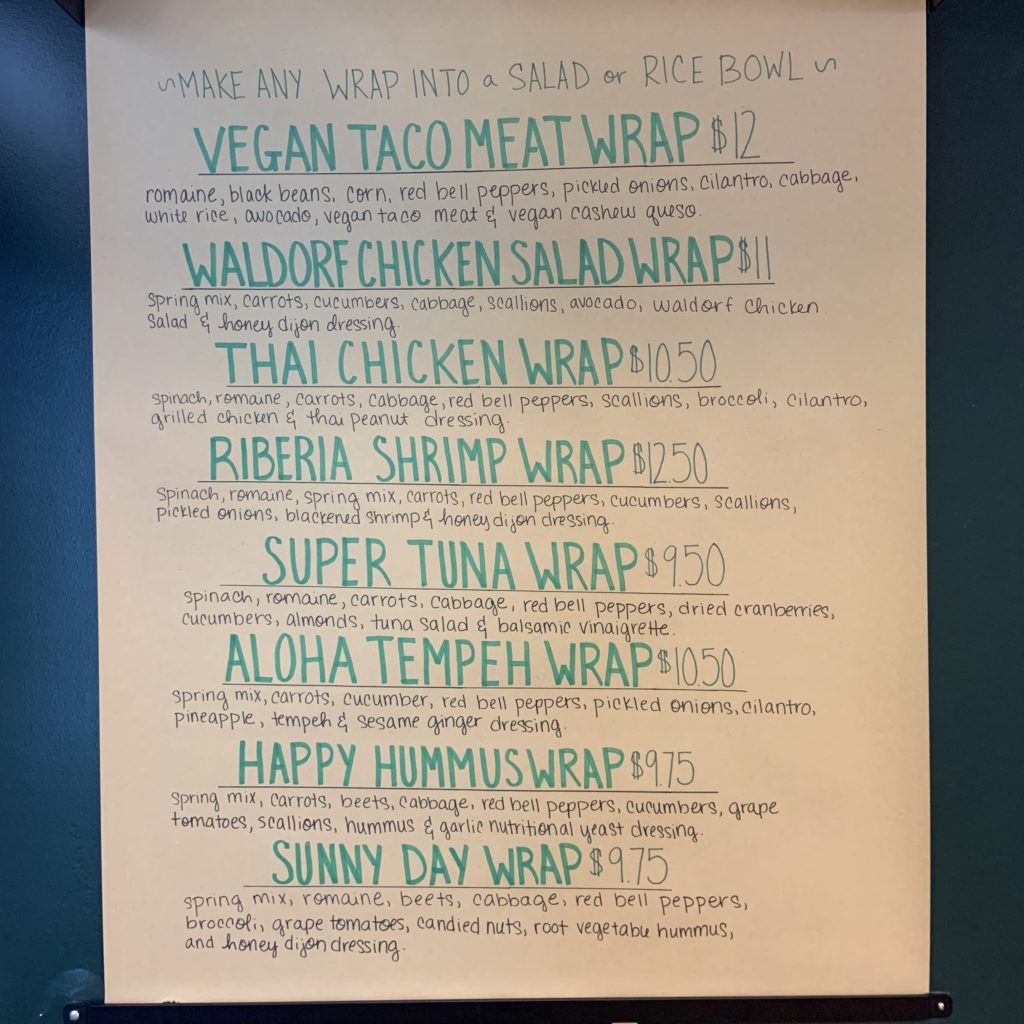 ~MAKE ANY WRAP INTO a SALAD or RICE BOWL~
VEGAN TACO MEAT WRAP $12
romaine, black beans, corn, red bell peppers, pickled onions, cilantro, cabbage,
white rice, avocado, vegan taco meat & vegan cashew queso.
WALDORF CHICKEN SALAD WRAP $11
spring mix, carrots, cucumbers, cabbage, scallions, avocado, waldorf chicken
salad & honey dijon dressing.
THAI CHICKEN WRAP $10.50
spinach, romaine, carrots, cabbage, red bell peppers, scallions, broccoli, cilantro,
grilled chicken & thai peanut dressing.
RIBERIA SHRIMP WRAP $12.50
spinach, romaine, spring mix, carrots, red bell peppers, cucumbers, scallions,
pickled onions, blackened shrimp & honey dijon dressing.
SUPER TUNA WRAP $9.50
spinach, romaine, carrots, cabbage, red bell peppers, dried cranberries,
cucumbers, almonds, tuna salad & balsamic vinaigrette.
ALOHA TEMPEH WRAP $10.50
spring mix, carrots, cucumber, red bell peppers, pickled onions, cilantro,
pineapple, tempeh & sesame ginger dressing.
HAPPY HUMMUS WRAP $9.75
spring mix, carrots, beets, cabbage, red bell peppers, cucumbers, grape
tomatoes, scallions, hummus & garlic nutritional yeast dressing.
SUNNY DAY WRAP $9.75
spring mix, romaine, beets, cabbage, red bell peppers,
broccoli, grape tomatoes, candied nuts, root vegetable hummus,
and honey dijon dressing.